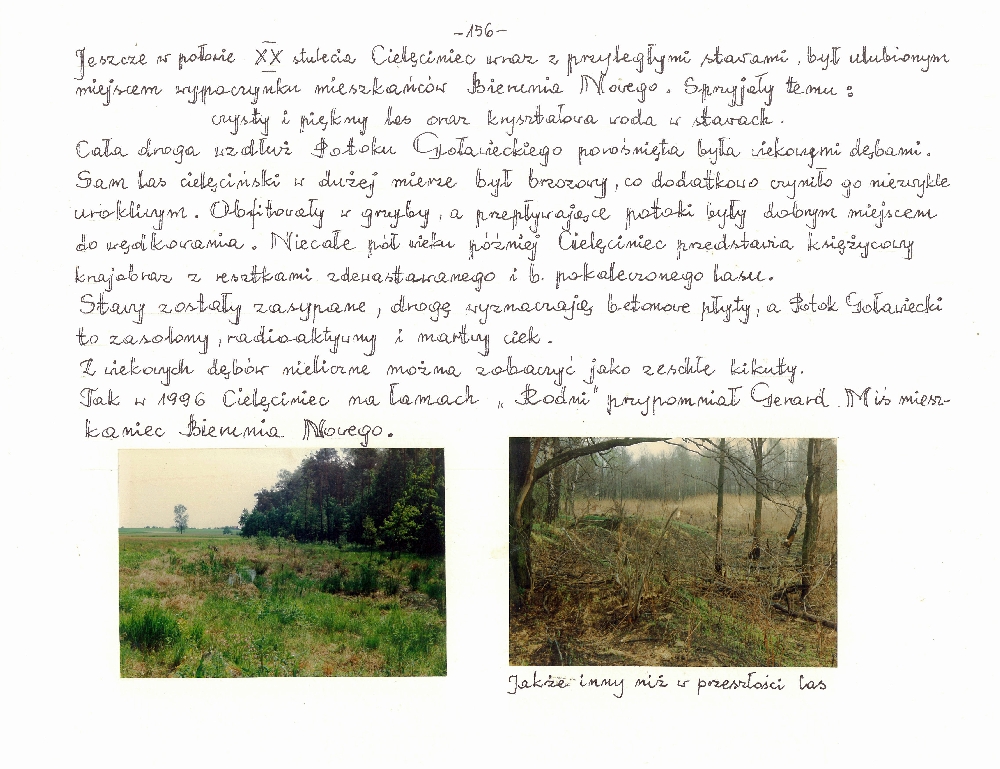 -156-
Jeszcze w połowie XX stulecia Cielęciniec wraz z przyległymi stawami, był ulubionym
miejscem wypoczynku mieszkańców Bierunia Nowego. Sprzyjały temu:
czysty i piękny las oraz kryształowa woda w stawach.
Cała droga wzdłuż Potoku Goławieckiego porośnięta była wiekowymi dębami.
Sam las cielęciński w dużej mierze był brzozowy, co dodatkowo czyniło go niezwykle
urokliwym. Obfitowały w grzyby, a przepływające potoki były dobrym miejscem
do wędkowania. Niecałe pół wieku później Cielęciniec przedstawia księżycowy
krajobraz z resztkami zdewastowanego i b. pokaleczonego lasu.
Stawy zostały zasypane, drogę wyznaczają betonowe płyty, a Potok Goławiecki
to zasolony, radioaktywny i martwy ciek.
Z wiekowych dębów nieliczne można zobaczyć jako zeschłe kikuty.
Tak w 1996 Cielęciniec na łamach „Rodni" przypomniał Gerard Miś miesz-
kaniec Bierunia Nowego.
Jakże inny niż w przeszłości las